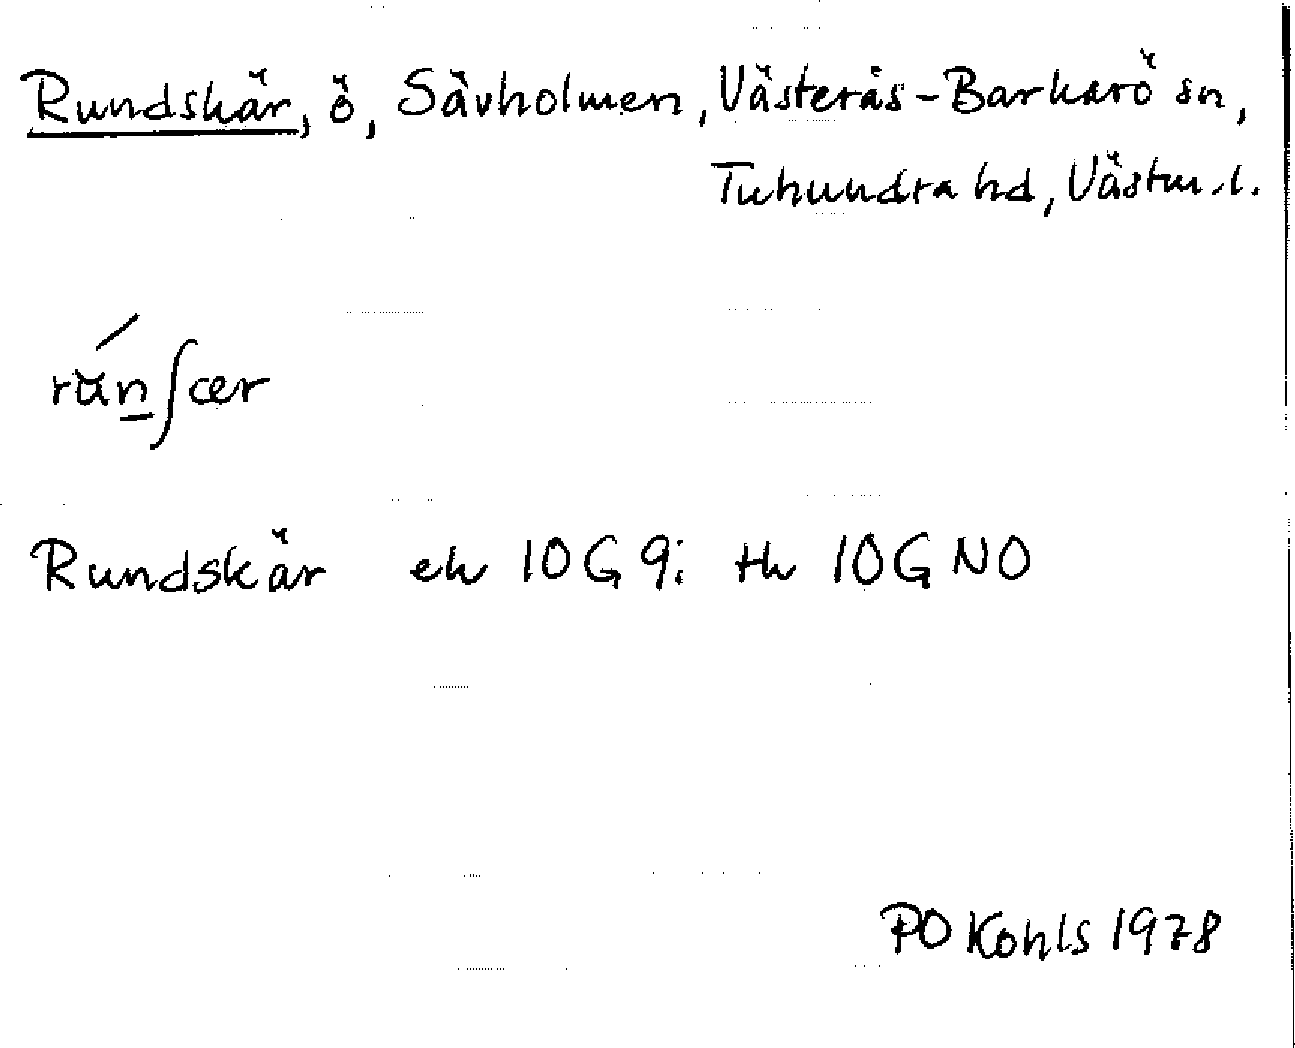 Rundskär, ö, Sävholmen, Västerås-Barkarö sn,
Tuhundra hd, Västm.l.
run̲ʃær
Rundskär ek 10G 9i tk 10G NO
PO Kohls 1978